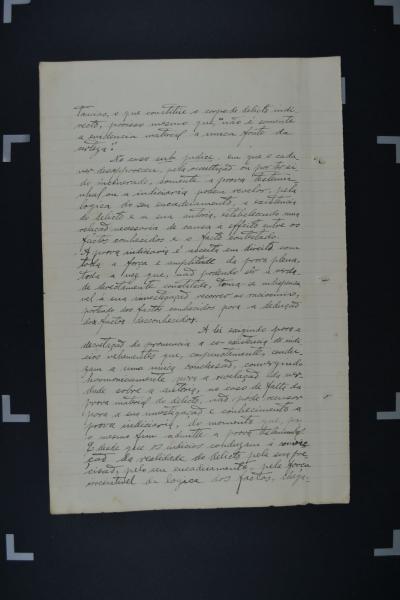 o que constitue o corpo de delicto indi-
recto, processo mesmo que, "não é somente
a evidencia material a unica fonte da
certeza".
No caso sub judice, em que o cada-
ver desappareceu, pela occultação ou por ter si-
do incinerado, somente a prova testemu-
nhal ou a indiciaria podem revelar, pela
logica do seu encadeamento, a existencia
do delicto e a sua autoria, estabelecendo uma
relação necessaria de causa a effeito entre os
factos conhecidos e o facto controlado.
A prova indiciaria é acceita em direito com
toda a força e amplitude da prova plena,
toda a vez que, não podendo ser a verda-
de directamente constatada, torna-se indispensa-
vel á sua investigação recorrer ao raciocinio,
partindo dos factos conhecidos para a deducção
dos factos desconhecidos.
A lei exigindo para a
decretação da pronuncia a co-existencia de indi-
cios vehementes que, conjunctamente, condu-
zam a uma unica conclusão, convergindo
harmonicamente para a revelação da ver-
dade sobre a autoria, no caso de falta da
prova material do delicto, não pode recusar
para a sua investigação e conhecimento a
prova indiciaria, do momento que, para
o mesmo fim admitte a prova testemunhal.
E desde que os indicios conduzam á convic-
ção da realidade do delicto pela sua pre-
cisão, pelo seu encadeamento, pela força
irresistivel da logica dos factos,